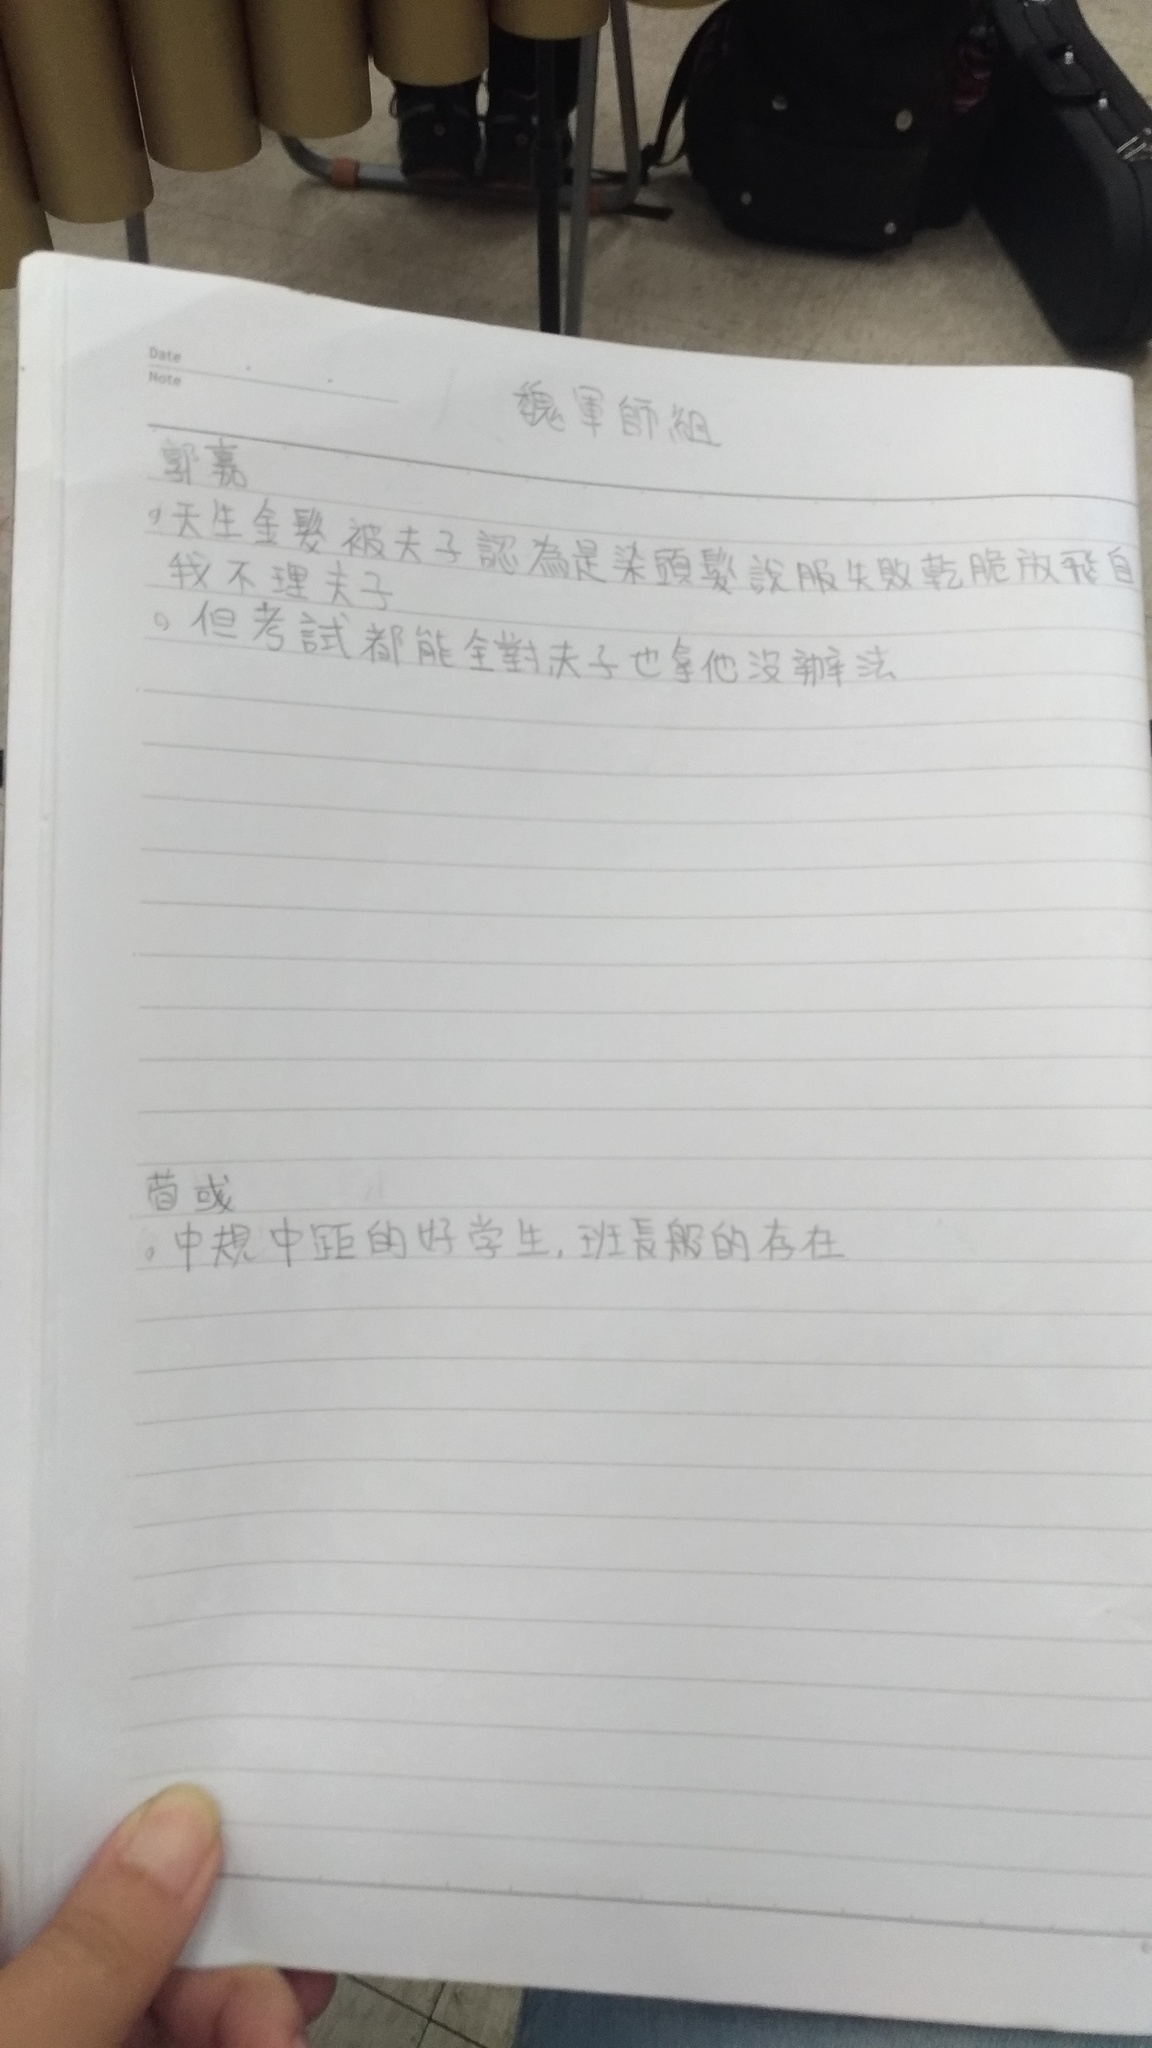 Date
Note
魏軍師組
郭嘉
。天生金髮被夫子認為是染頭髮說服失敗乾脆放飛自
我不理夫子
。但考試都能全對夫子也拿他沒辦法
荀或
。中規中距的好学生,班長般的存在